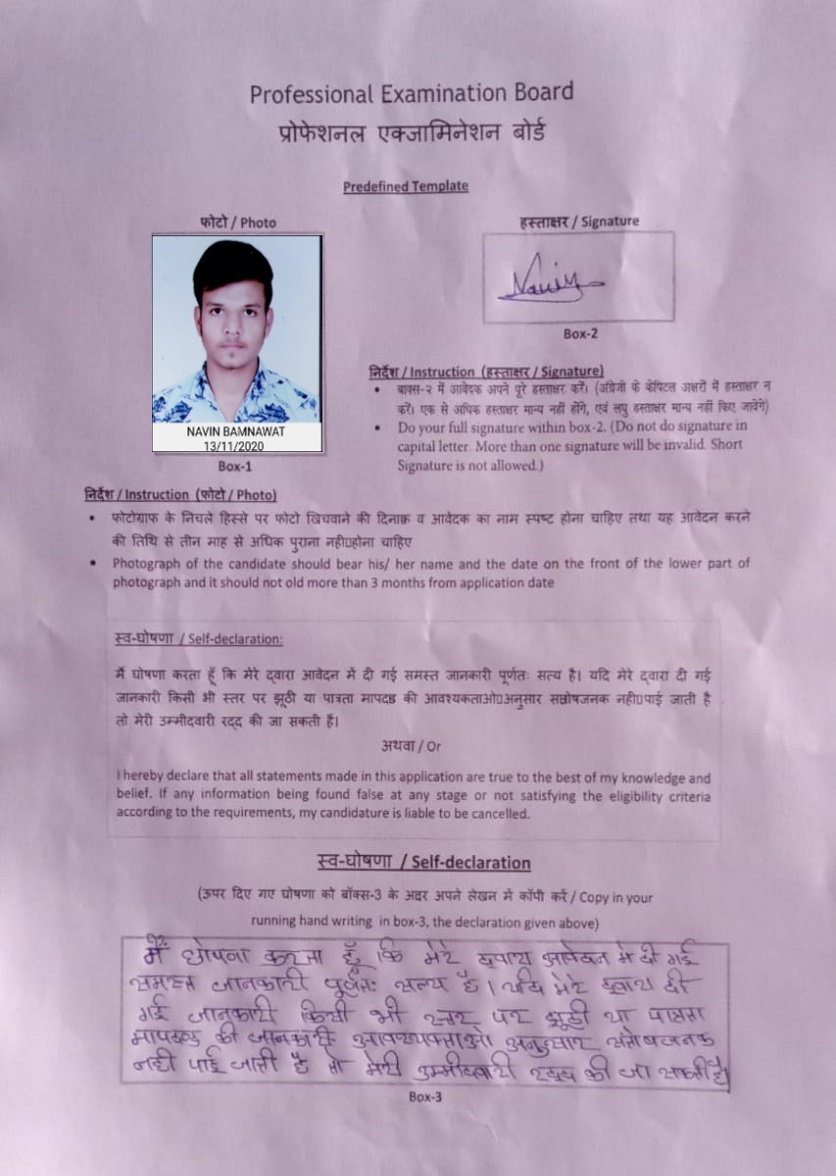 Professional Examination Board
प्रोफेशनल एक्जामिनेशन बोर्ड
Predefined Template
फोटो / Photo
NAVIN BAMNAWAT
13/11/2020
Box-1
हस्ताक्षर / Signature
Navin
Box-2
निर्देश / Instruction (हस्ताक्षर / Signature)
• बाक्स-२ में आवेदक अपने पूरे हस्ताक्षर करें। (अंग्रेजी के केपिटल अक्षरों में हस्ताक्षर न
करें। एक से अधिक हस्ताक्षर मान्य नहीं होंगे, एवं लघु हस्ताक्षर मान्य नहीं किए जावेंगे)
• Do your full signature within box-2. (Do not do signature in
capital letter. More than one signature will be invalid. Short
Signature is not allowed.)
निर्देश / Instruction (फोटो / Photo)
• फोटोग्राफ के निचले हिस्से पर फोटो खिचवाने की दिनाक व आवेदक का नाम स्पष्ट होना चाहिए तथा यह आवेदन करने
की तिथि से तीन माह से अधिक पुराना नही▯होना चाहिए
• Photograph of the candidate should bear his/ her name and the date on the front of the lower part of
photograph and it should not old more than 3 months from application date
स्व-घोषणा / Self-declaration:
मैं घोषणा करता हूँ कि मेरे द्वारा आवेदन में दी गई समस्त जानकारी पूर्णतः सत्य है। यदि मेरे द्वारा दी गई
जानकारी किसी भी स्तर पर झूठी या पात्रता मापदड की आवश्यकताओ▯अनुसार सतोषजनक नही▯पाई जाती है
तो मेरी उम्मीदवारी रद्द की जा सकती हैं।
अथवा / Or
I hereby declare that all statements made in this application are true to the best of my knowledge and
belief. If any information being found false at any stage or not satisfying the eligibility criteria
according to the requirements, my candidature is liable to be cancelled.
स्व-घोषणा / Self-declaration
(ऊपर दिए गए घोषणा को बॉक्स-3 के अदर अपने लेखन में कॉपी करें / Copy in your
running hand writing in box-3, the declaration given above)
मैं घोषना करता हूँ कि मेरे द्वारा आवेदन मे दी गई
समस्त जानकारी पूर्णतः सत्य है। यदि मेरे द्वारा दी
गई जानकारी किसी भी स्तर पर झूठी या पात्रता
मापदण्ड की जानकारी आवश्यक्ताओ अनुसार संतोषजनक
नही पाई जाती है तो मेरी उम्मीदवारी रद्द की जा सकती है।
Box-3